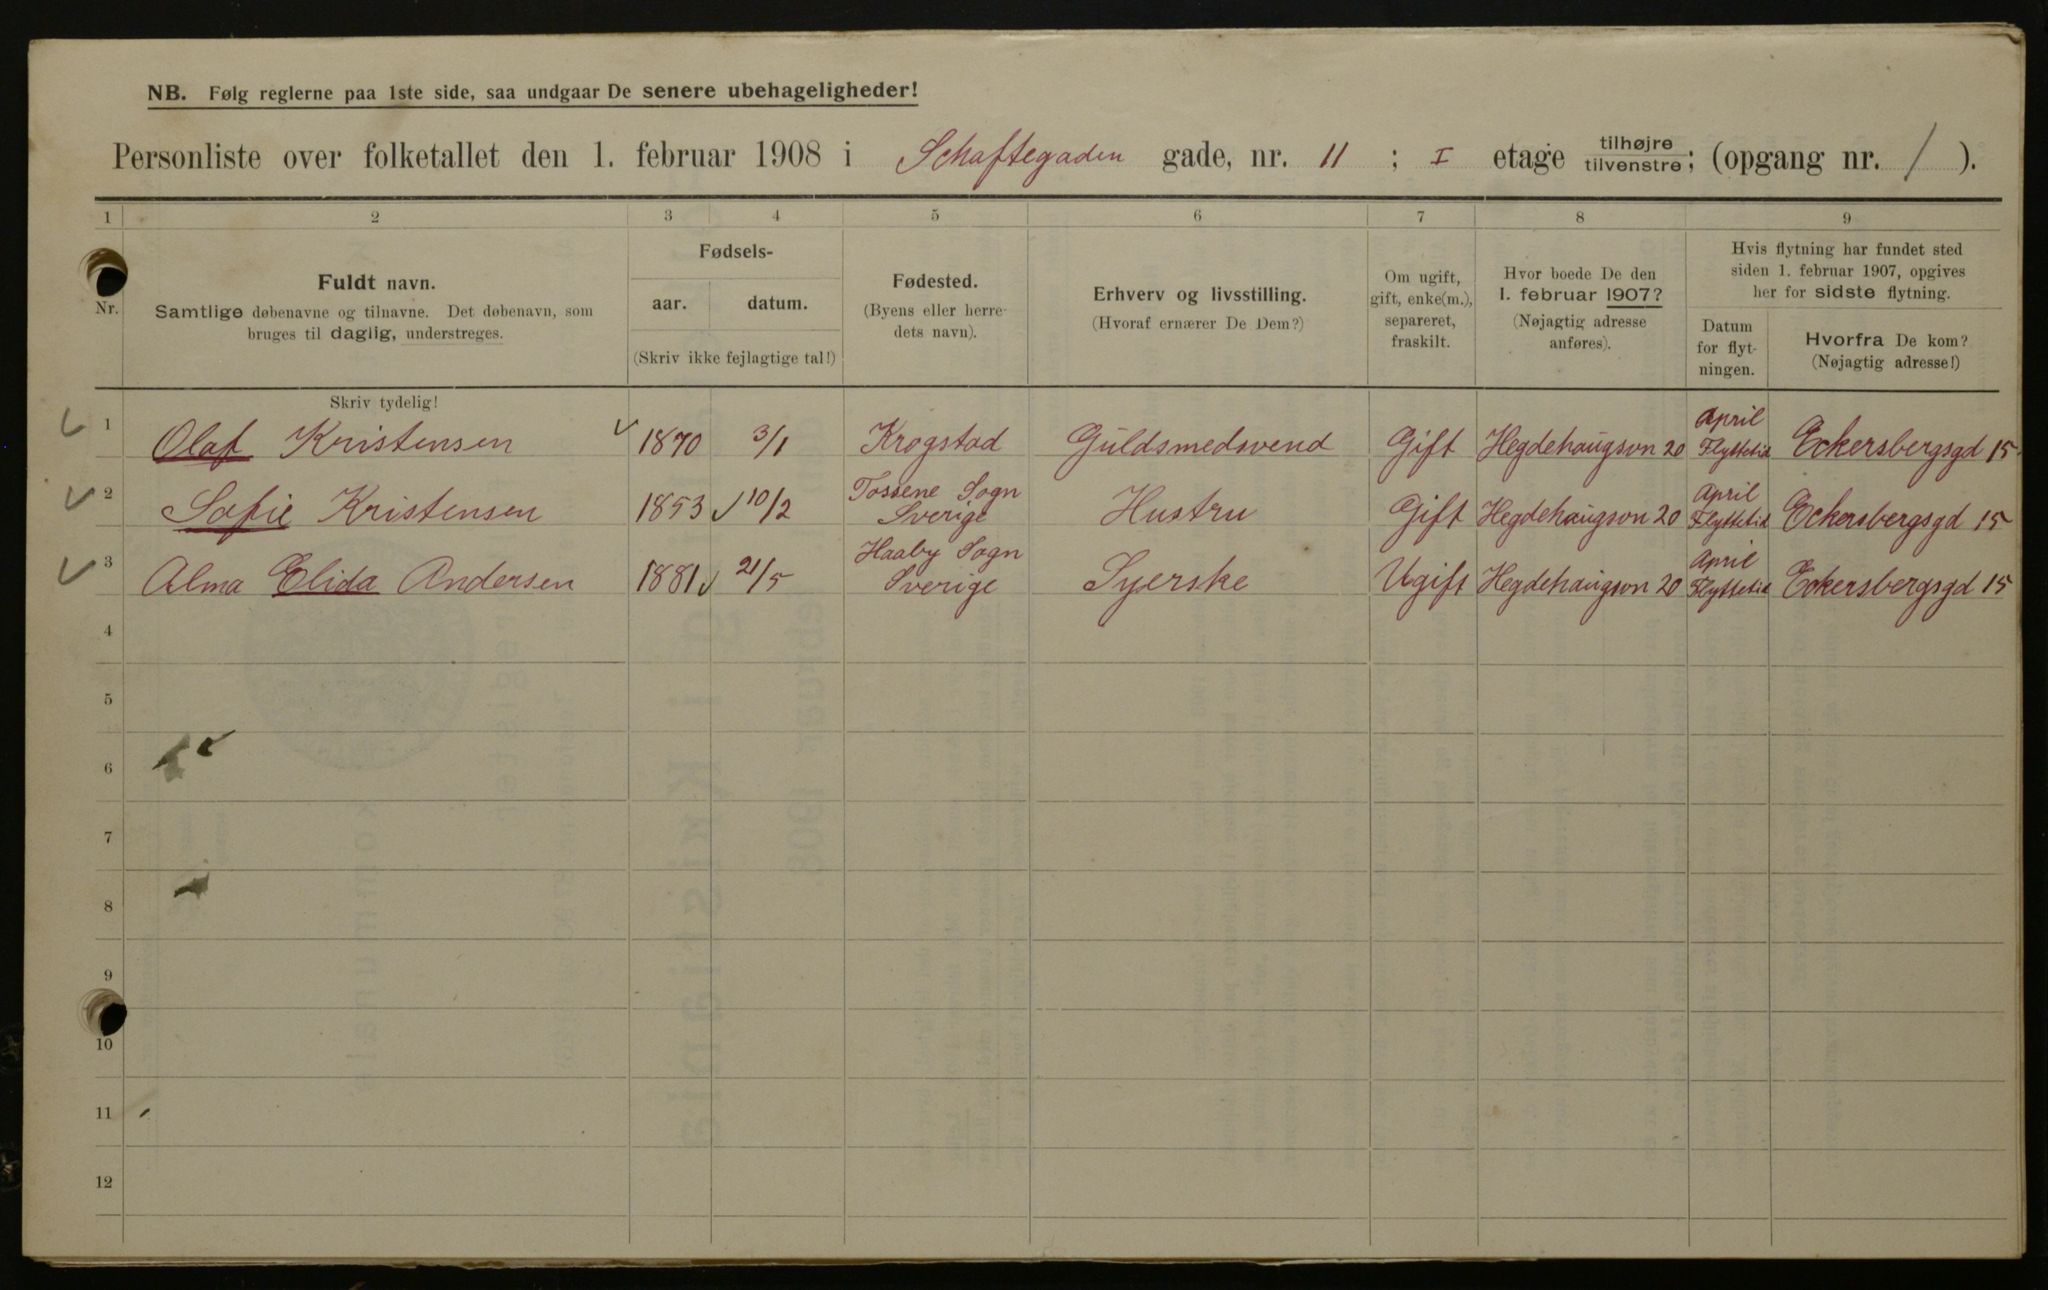 NB. Følg reglerne paa 1ste side, saa undgaar De senere ubehageligheder!
Personliste over folketallet den 1. februar 1908 i Schaftegaden gade, nr. 11 ; I etage tilhøjre tilvenstre; (opgang nr. / ).
1 2 3 4 5 6 7 8 9
Nr.
Fuldt navn.
Samtlige døbenavne og tilnavne. Det døbenavn, som
bruges til daglig, understreges.
Fødsels-
aar. datum.
(Skriv ikke fejlagtige tal!)
Fødested.
(Byens eller herre-
dets navn).
Erhverv og livsstilling.
(Hvoraf ernærer De Dem?)
Om ugift,
gift, enke(m.),
separeret,
fraskilt.
Hvor boede De den
1. februar 1907?
(Nøjagtig adresse
anføres).
Hvis flytning har fundet sted
siden 1. februar 1907, opgives
her for sidste flytning.
Datum
for flyt-
ningen.
Hvorfra De kom?
(Nøjagtig adresse!)
Skriv tydelig!
1 Olaf Kristensen 1870 3/1 Krogstad Guldsmedsvend Gift Hegdehaugsvn 20 April Flyttetid Eckersbergsgd 15
2 Sofie Kristensen 1853 10/2 Tossene Sogn Sverige Hustru Gift Hegdehaugsvn 20 April Flyttetid Eckersbergsgd 15
3 Alma Elida Andersen 1881 21/5 Haaby Sogn Sverige Syerske Ugift Hegdehaugsvn 20 April Flyttetid Eckersbergsgd 15
4
5
6
7
8
9
10
11
12